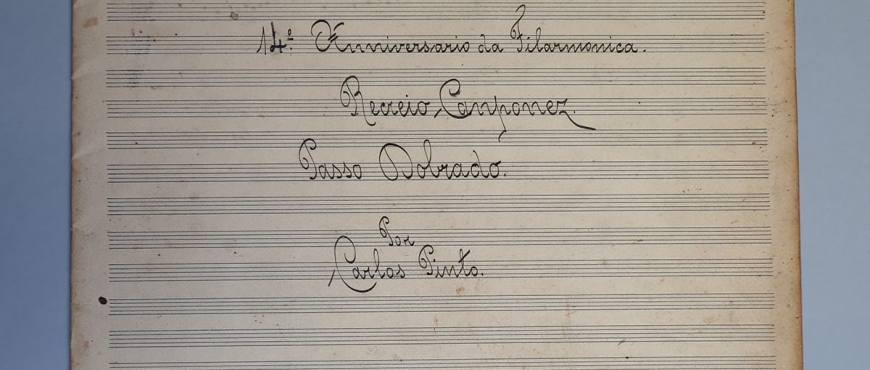 14º Anniversario da Filarmonica.
Recreio Camponez
Passo Dobrado.
Por
Carlos Pinto.